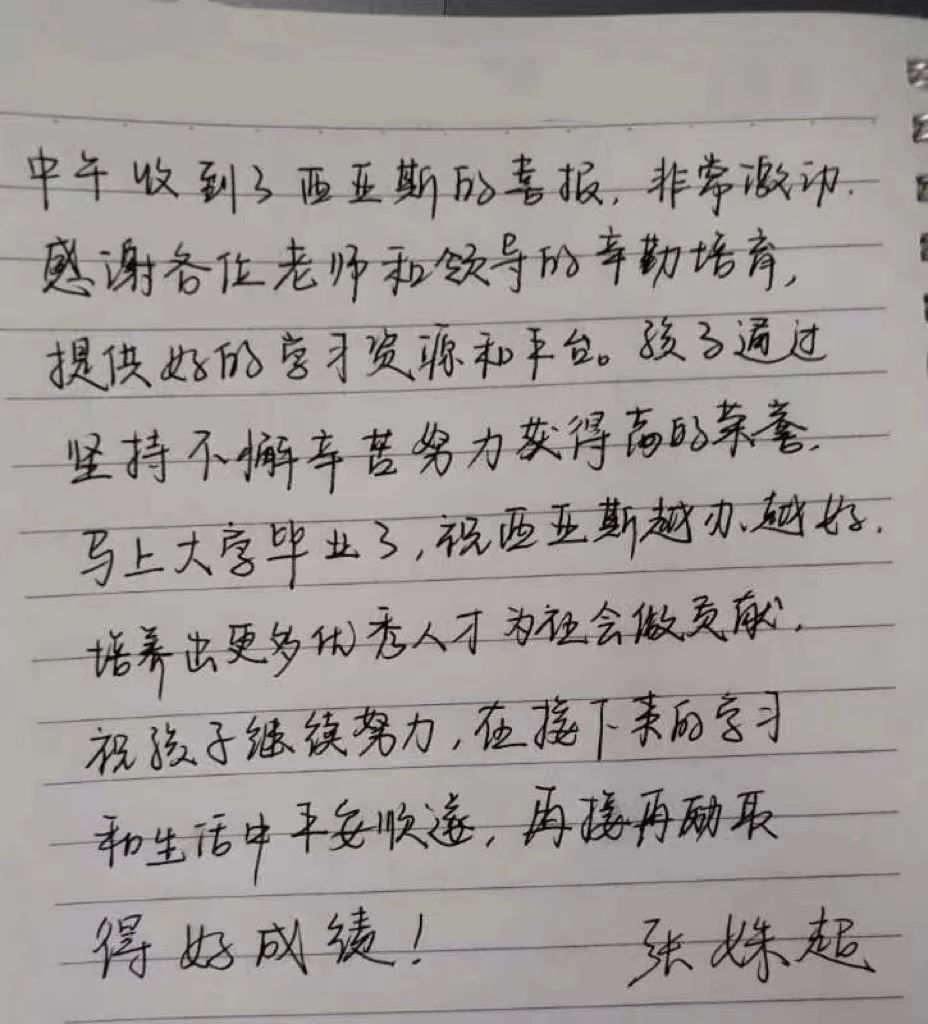 中午收到了西亚斯的喜报，非常激动.
感谢各位老师和领导的辛勤培育，
提供好的学习资源和平台。孩子通过
坚持不懈辛苦努力获得高的荣誉.
马上大学毕业了，祝西亚斯越办、越好.
培养出更多优秀人才为社会做贡献.
祝孩子继续努力，在接下来的学习
和生活中平安顺遂，再接再励取
得好成绩！ 张姝超